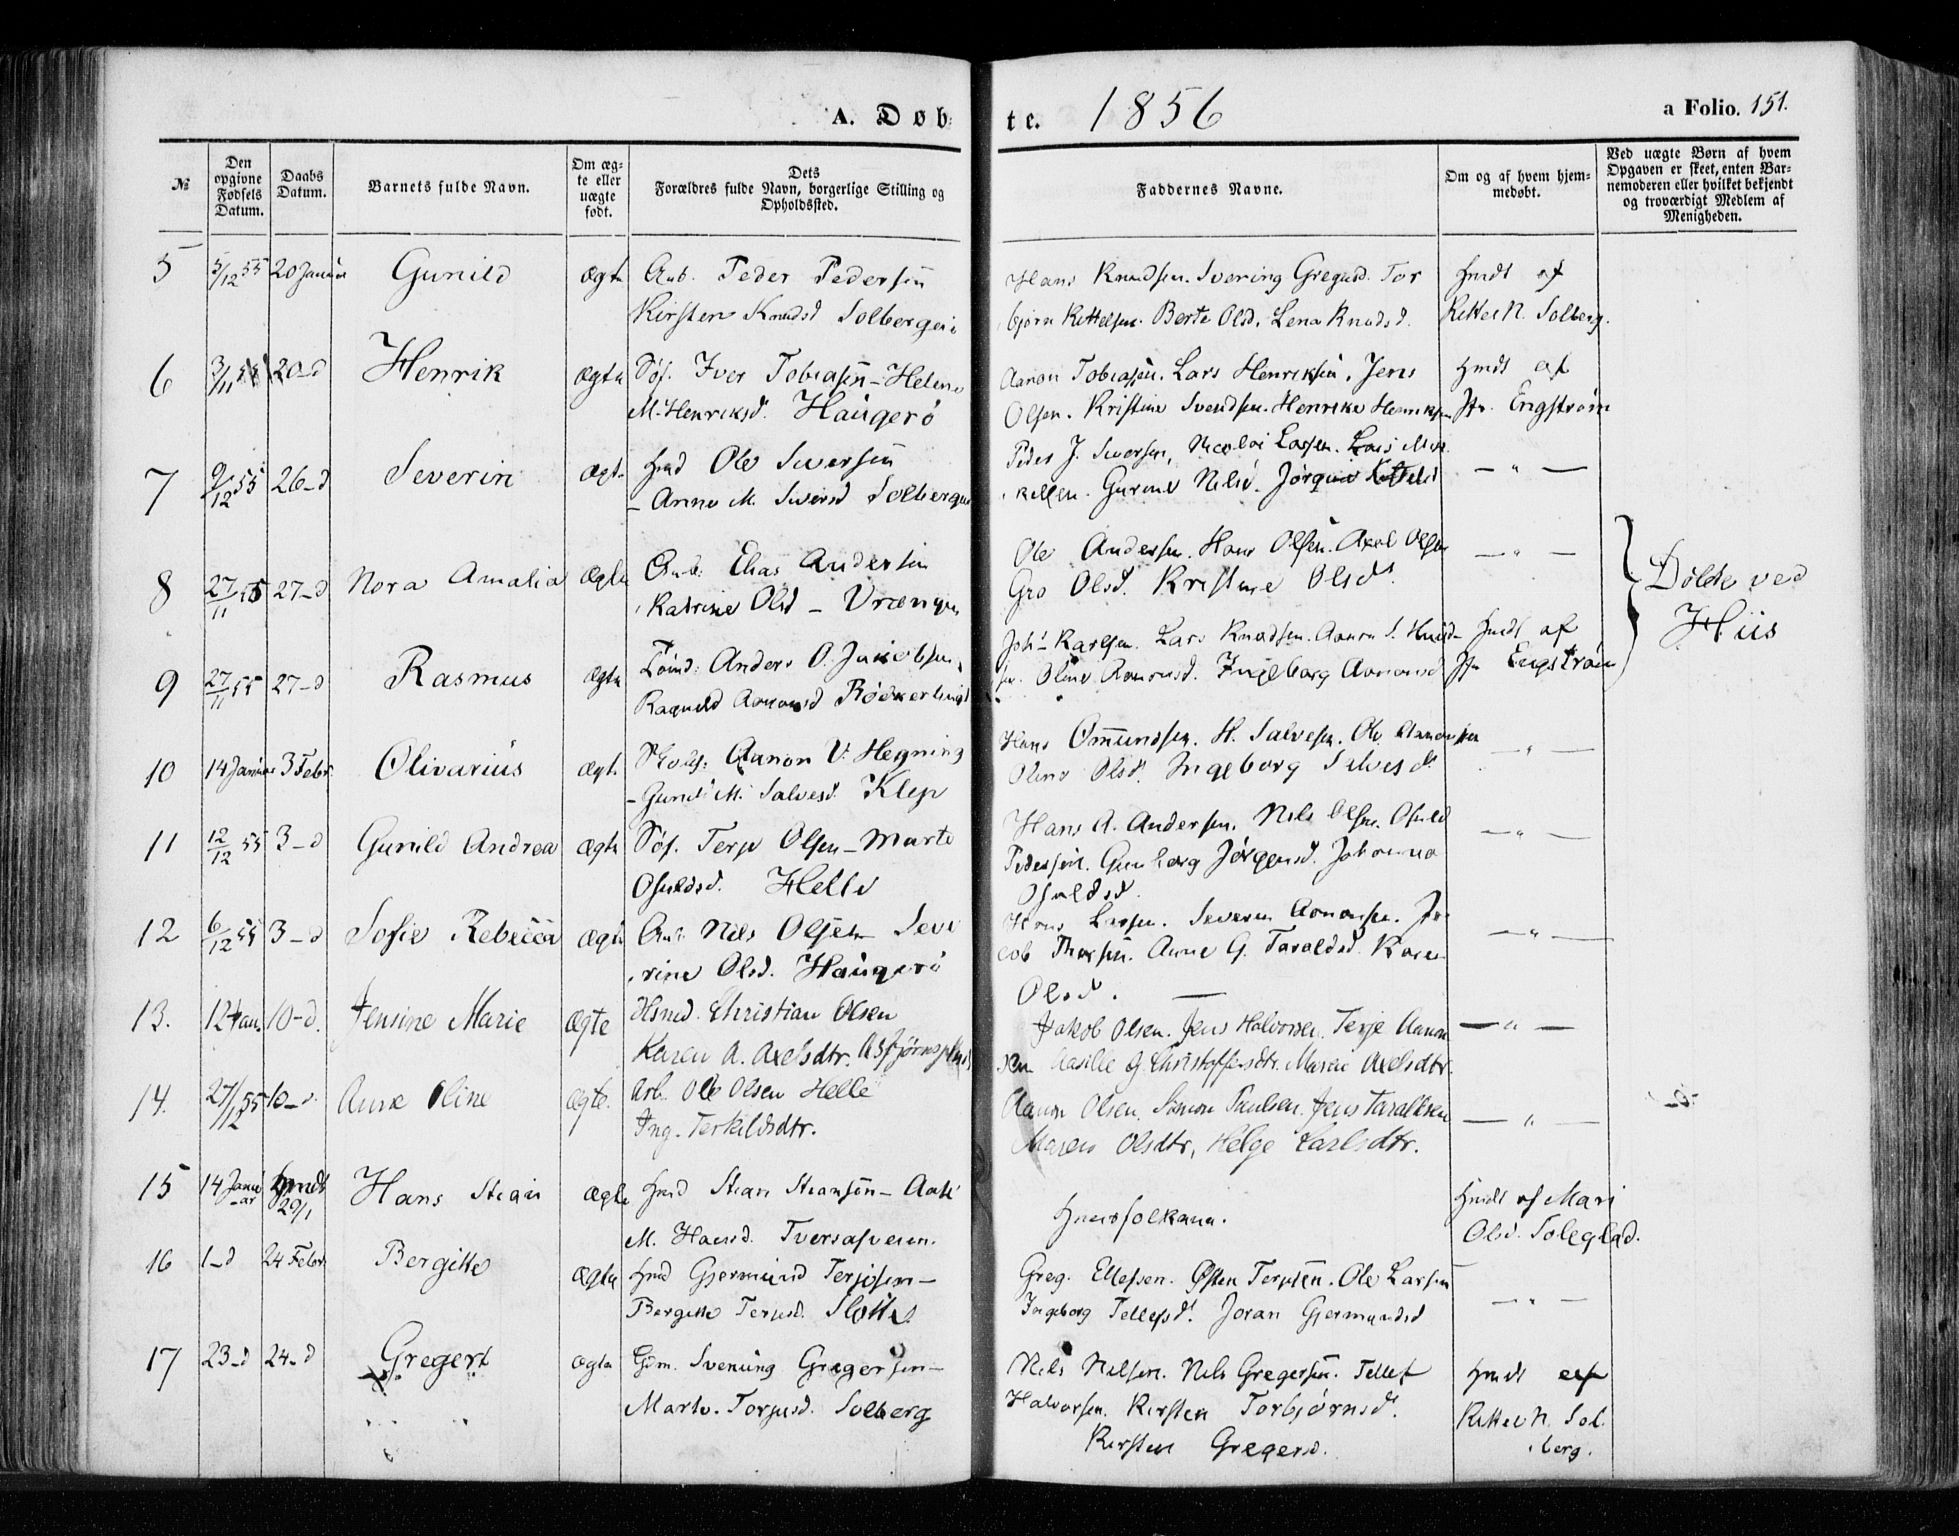 A. Døb-
te. 1856
a Folio. 151.
№
Den opgivne Fødsels Datum.
Daabs Datum.
Barnets fulde Navn.
Om ægte eller uægte født.
Dets
Forældres fulde Navn, borgerlige Stilling og
Opholdssted.
Faddernes Navne.
Om og af hvem hjem-
medøbt.
Ved uægte Børn af hvem
Opgaven er skeet, enten Bar-
nemoderen eller hvilket bekjendt
og troværdigt Medlem af
Menigheden.
5 5/12 55 20 Januar Gunild Ægte Arb. Peder Pedersen Hans Knudsen. Svening Gregersd. Tor hmdt af
Kirsten Knudsd Solberg bjørn Kittelsen. Berte Olsd. Lena Knudsd. Kittel N. Solberg.
6 3/11 55 20-d Henrik Ægte Søf. Iver Tobiasen - Helene Aanon Tobiasen. Lars Henriksen. Jens hmdt af
M. Henriksd. Haugerø Olsen. Kristine Svendsen. Henrike Henriksen Engstrøm
7 9/12 55 26-d Severin Ægt. Hmd Ole Iversen Peder J. Iversen, Nicolai Larsen.
- Anne M. Iversd Nilsd. Kittelsd - " -
8 27/11 55 27-d Nora Amalia Ægte Arb. Elias Andersen Ole Andersen. Hans Olsen. Axel Olsen - " -
Katrine Olsd - Gro Olsd. Kristine Olsd. Døbte ved
Hiis
9 27/11 55 27-d Rasmus Ægte Anders O. Jakobsen Joh. Karlsen. Lars Knudsen. Aanon S. hmdt af
Ragnild Aanonsd Oline Aanonsd. Ingeborg Aanonsd Engstrøm
10 14 Januar 3 Febr. Olivarius Ægt. Aanon V. Hegning Hans Omundsen. H. Salvesen. Ol. Aanonsen - " -
- Gunil M. Salvesd. Klep Oline Olsd. Ingeborg Salvesd.
11 12/12 55 3-d Gunild Andrea Ægte Søf. Terje Olsen - Marte Hans A. Andersen. Nils Olsen. Osuld - " -
Osuldsd. Helle Pedersen. Gunborg Jørgensd. Johanna
Osuldsd.
12 6/12 55 3-d Sofie Rebecca Ægte Arb. Nils Olsen Seve Hans Larsen. Severin Aanonsen. Ja - " -
rine Olsd. Haugerø cob Thorsen. Anne G. Taraldsd. Karen
Olsd.
13. 12 Jan. 10-d. Jensine Marie Ægte Hsmd. Christian Olsen Jakob Olsen. Jens Halvorsen. Terje Aanon - " -
Karen A. Axelsdtr. sen Aasille G. Christoffersdtr. Maren Axelsdtr.
14. 27/12 55 10-d. Anne Oline Ægte. Arb. Ole Olsen Helle Aanon Olsen. Simon Paulsen. Jens Taraldsen - " -
Ing. Terkildsdtr. Maren Olsdtr, Helge Karlsdtr.
15 14 Januar hmdt 29/1 Hans Stean Ægte hmd Stean Steansen - hmdt af Mari
M. Hansd. Olsd. Soleglad.
16 1-d 24 Febr. Bergitte Ægte hmd Gjermund Terjesen - Greg. Ellefsen. Østen Terjesen. Ole Larsen - " -
Bergitte Terjesd. Slotte Ingeborg Tellefsd. Joran Gjermundsd
17 23-d 24-d Gregert Ægte Gdm. Svening Gregersen - Nils Nilsen. Nils Gregersen. Tellef hmdt af
Marte. Torjusd. Solberg Halvorsen. Kirsten Torbjørnsd. Kittel N. Sol
Kirsten Gregersd. berg.